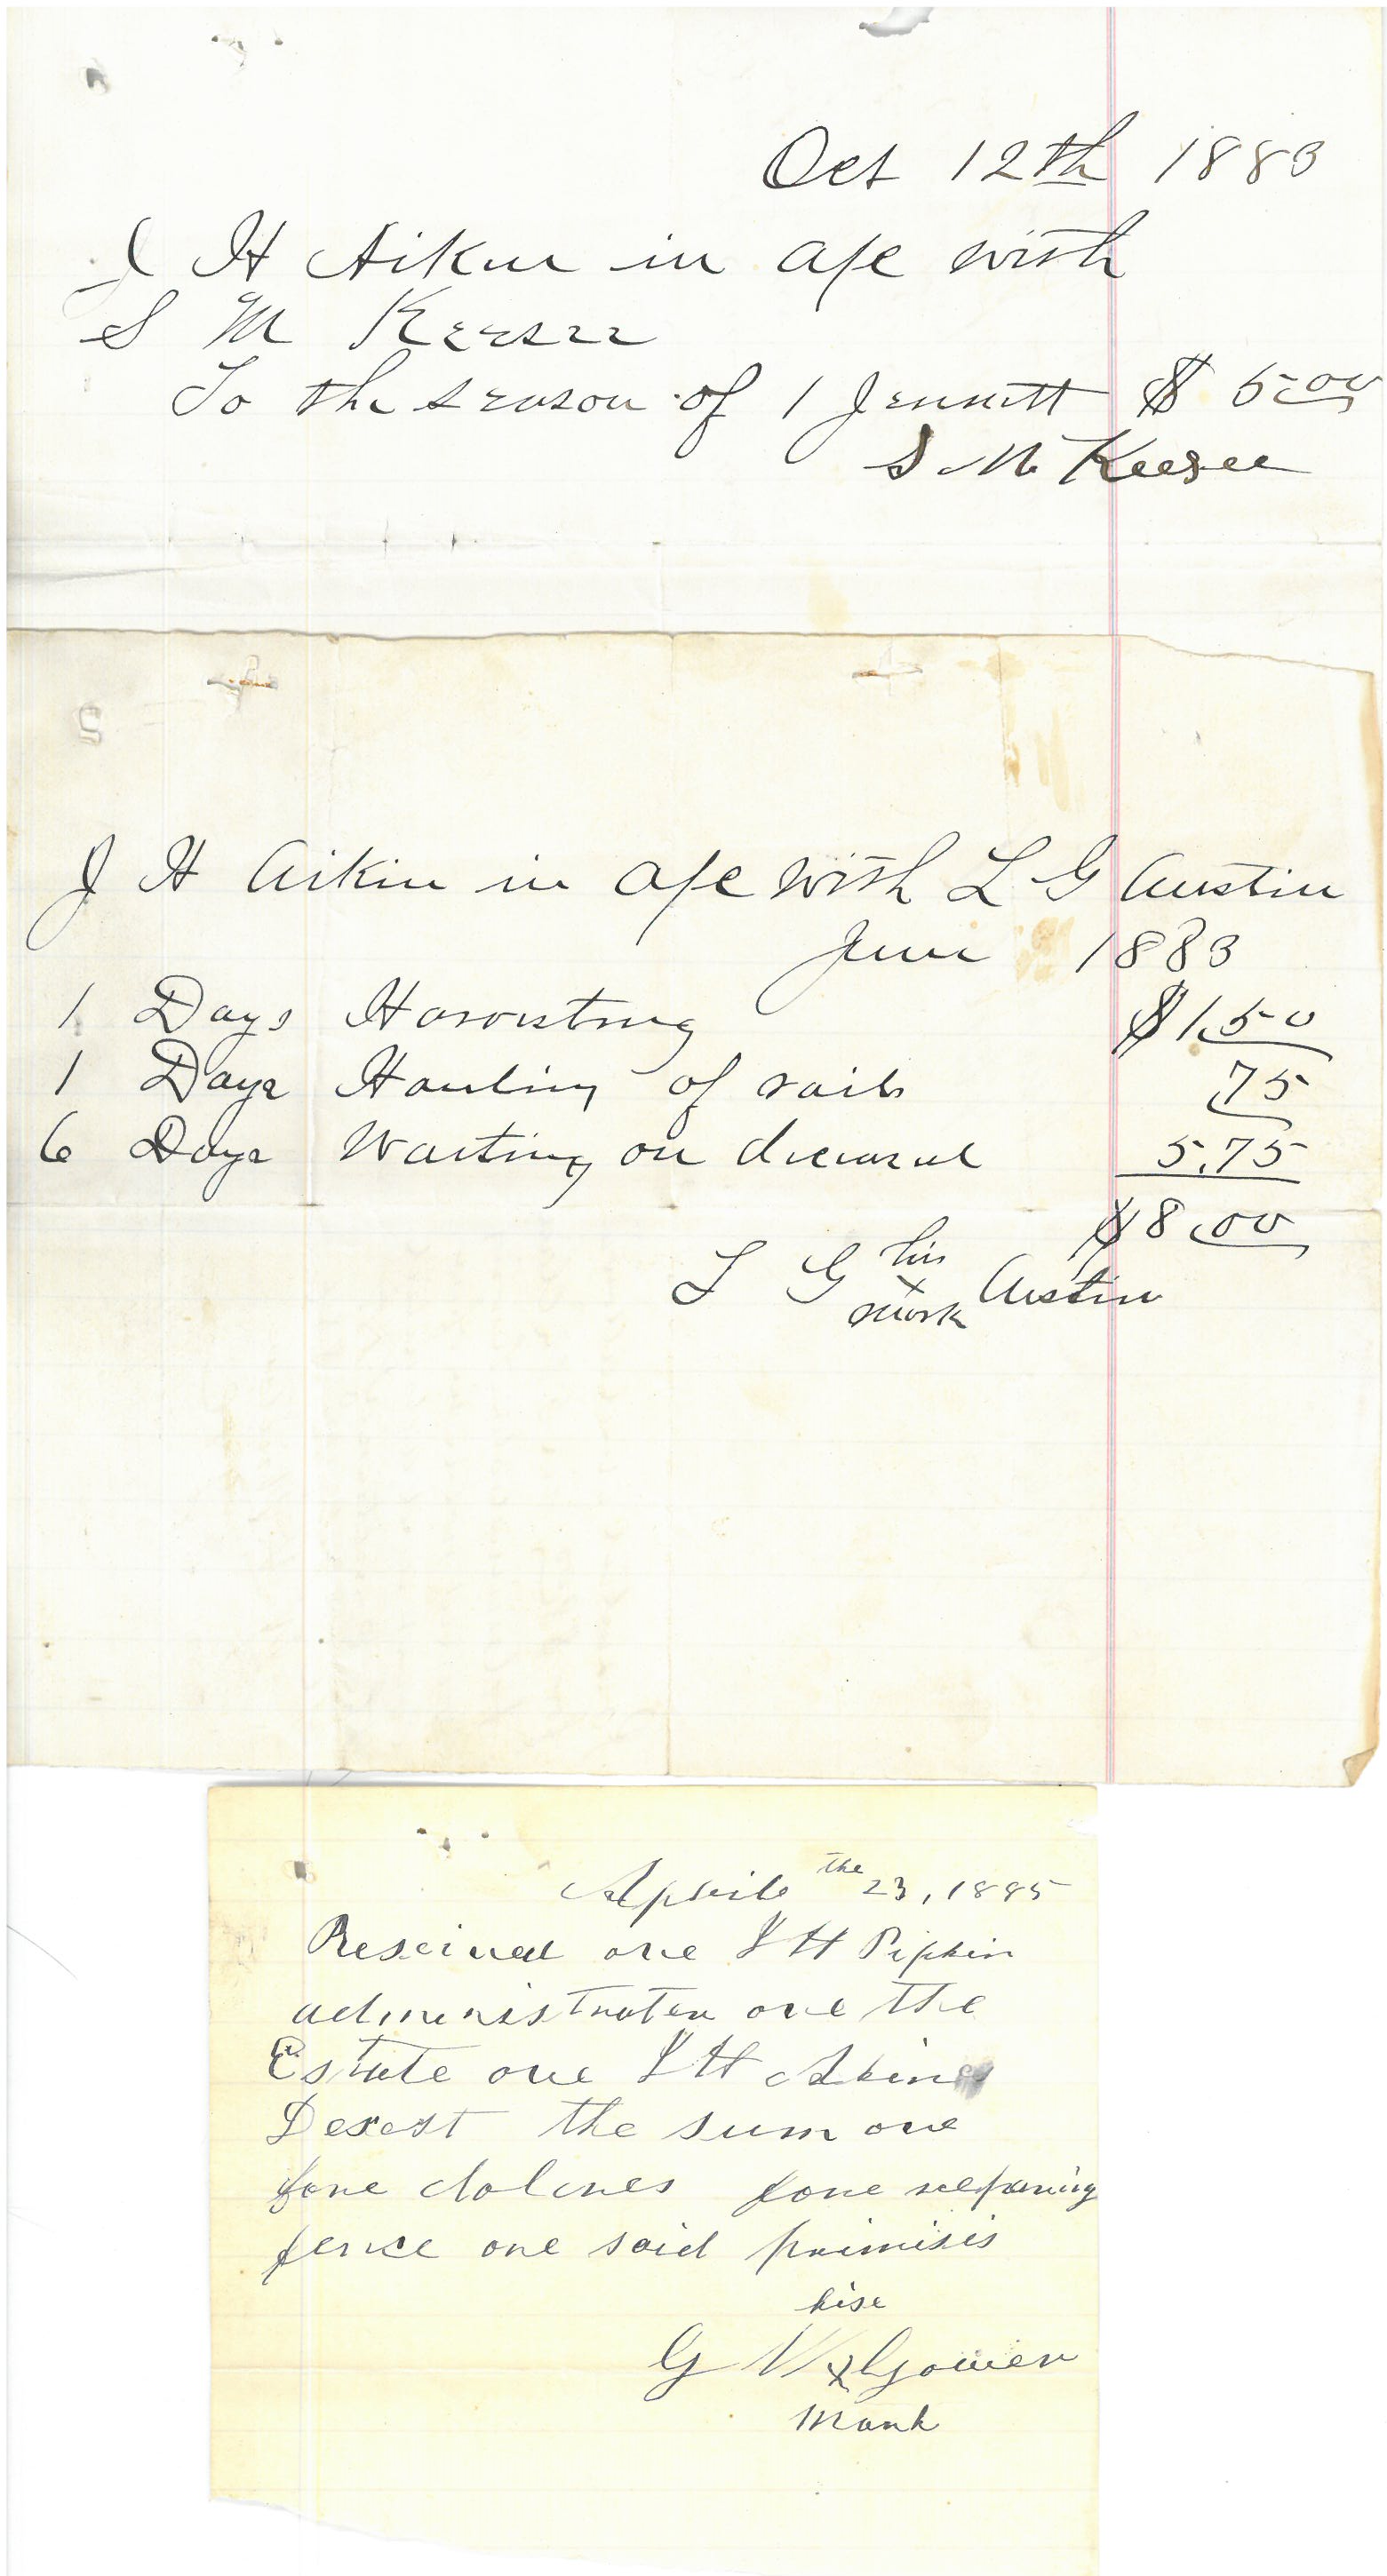 Oct 12th 1883
J H Aikin in a/c with
S M Keesee
To the season of 1 Jennett $ 5.00
S M Keesee
J H Aikin in a/c with L G Austin
June 1883
1 Days Harvesting $1.50
1 Days Hauling of rails 75
6 Days Waiting on diceased 5.75
$8.00
L G his Austin
x
mark
Aprile the 23, 1885
Reseived one J H Pipkin
administrater one the
Estate one J H Akin
Desest the sum one
fore dolares fore reparing
fence one said primisis
hise
G W x Gower
mark